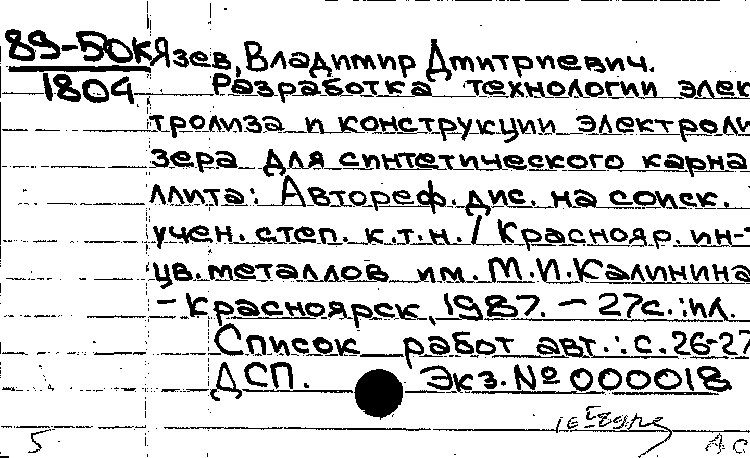 89-50к Язев, Владимир Дмитриевич.
1804 Разработка технологии элек
тролиза и конструкции электроли
зера для синтетического карна
ллита: Автореф. дис. на соиск.
учен. степ. к.т.н. / Краснояр. ин-т
цв. металлов им. М.И. Калинина
- Красноярск, 1987. - 27с.: ил.
Список работ авт.: с. 26-27
ДСП. Экз. № 000018
5 АС